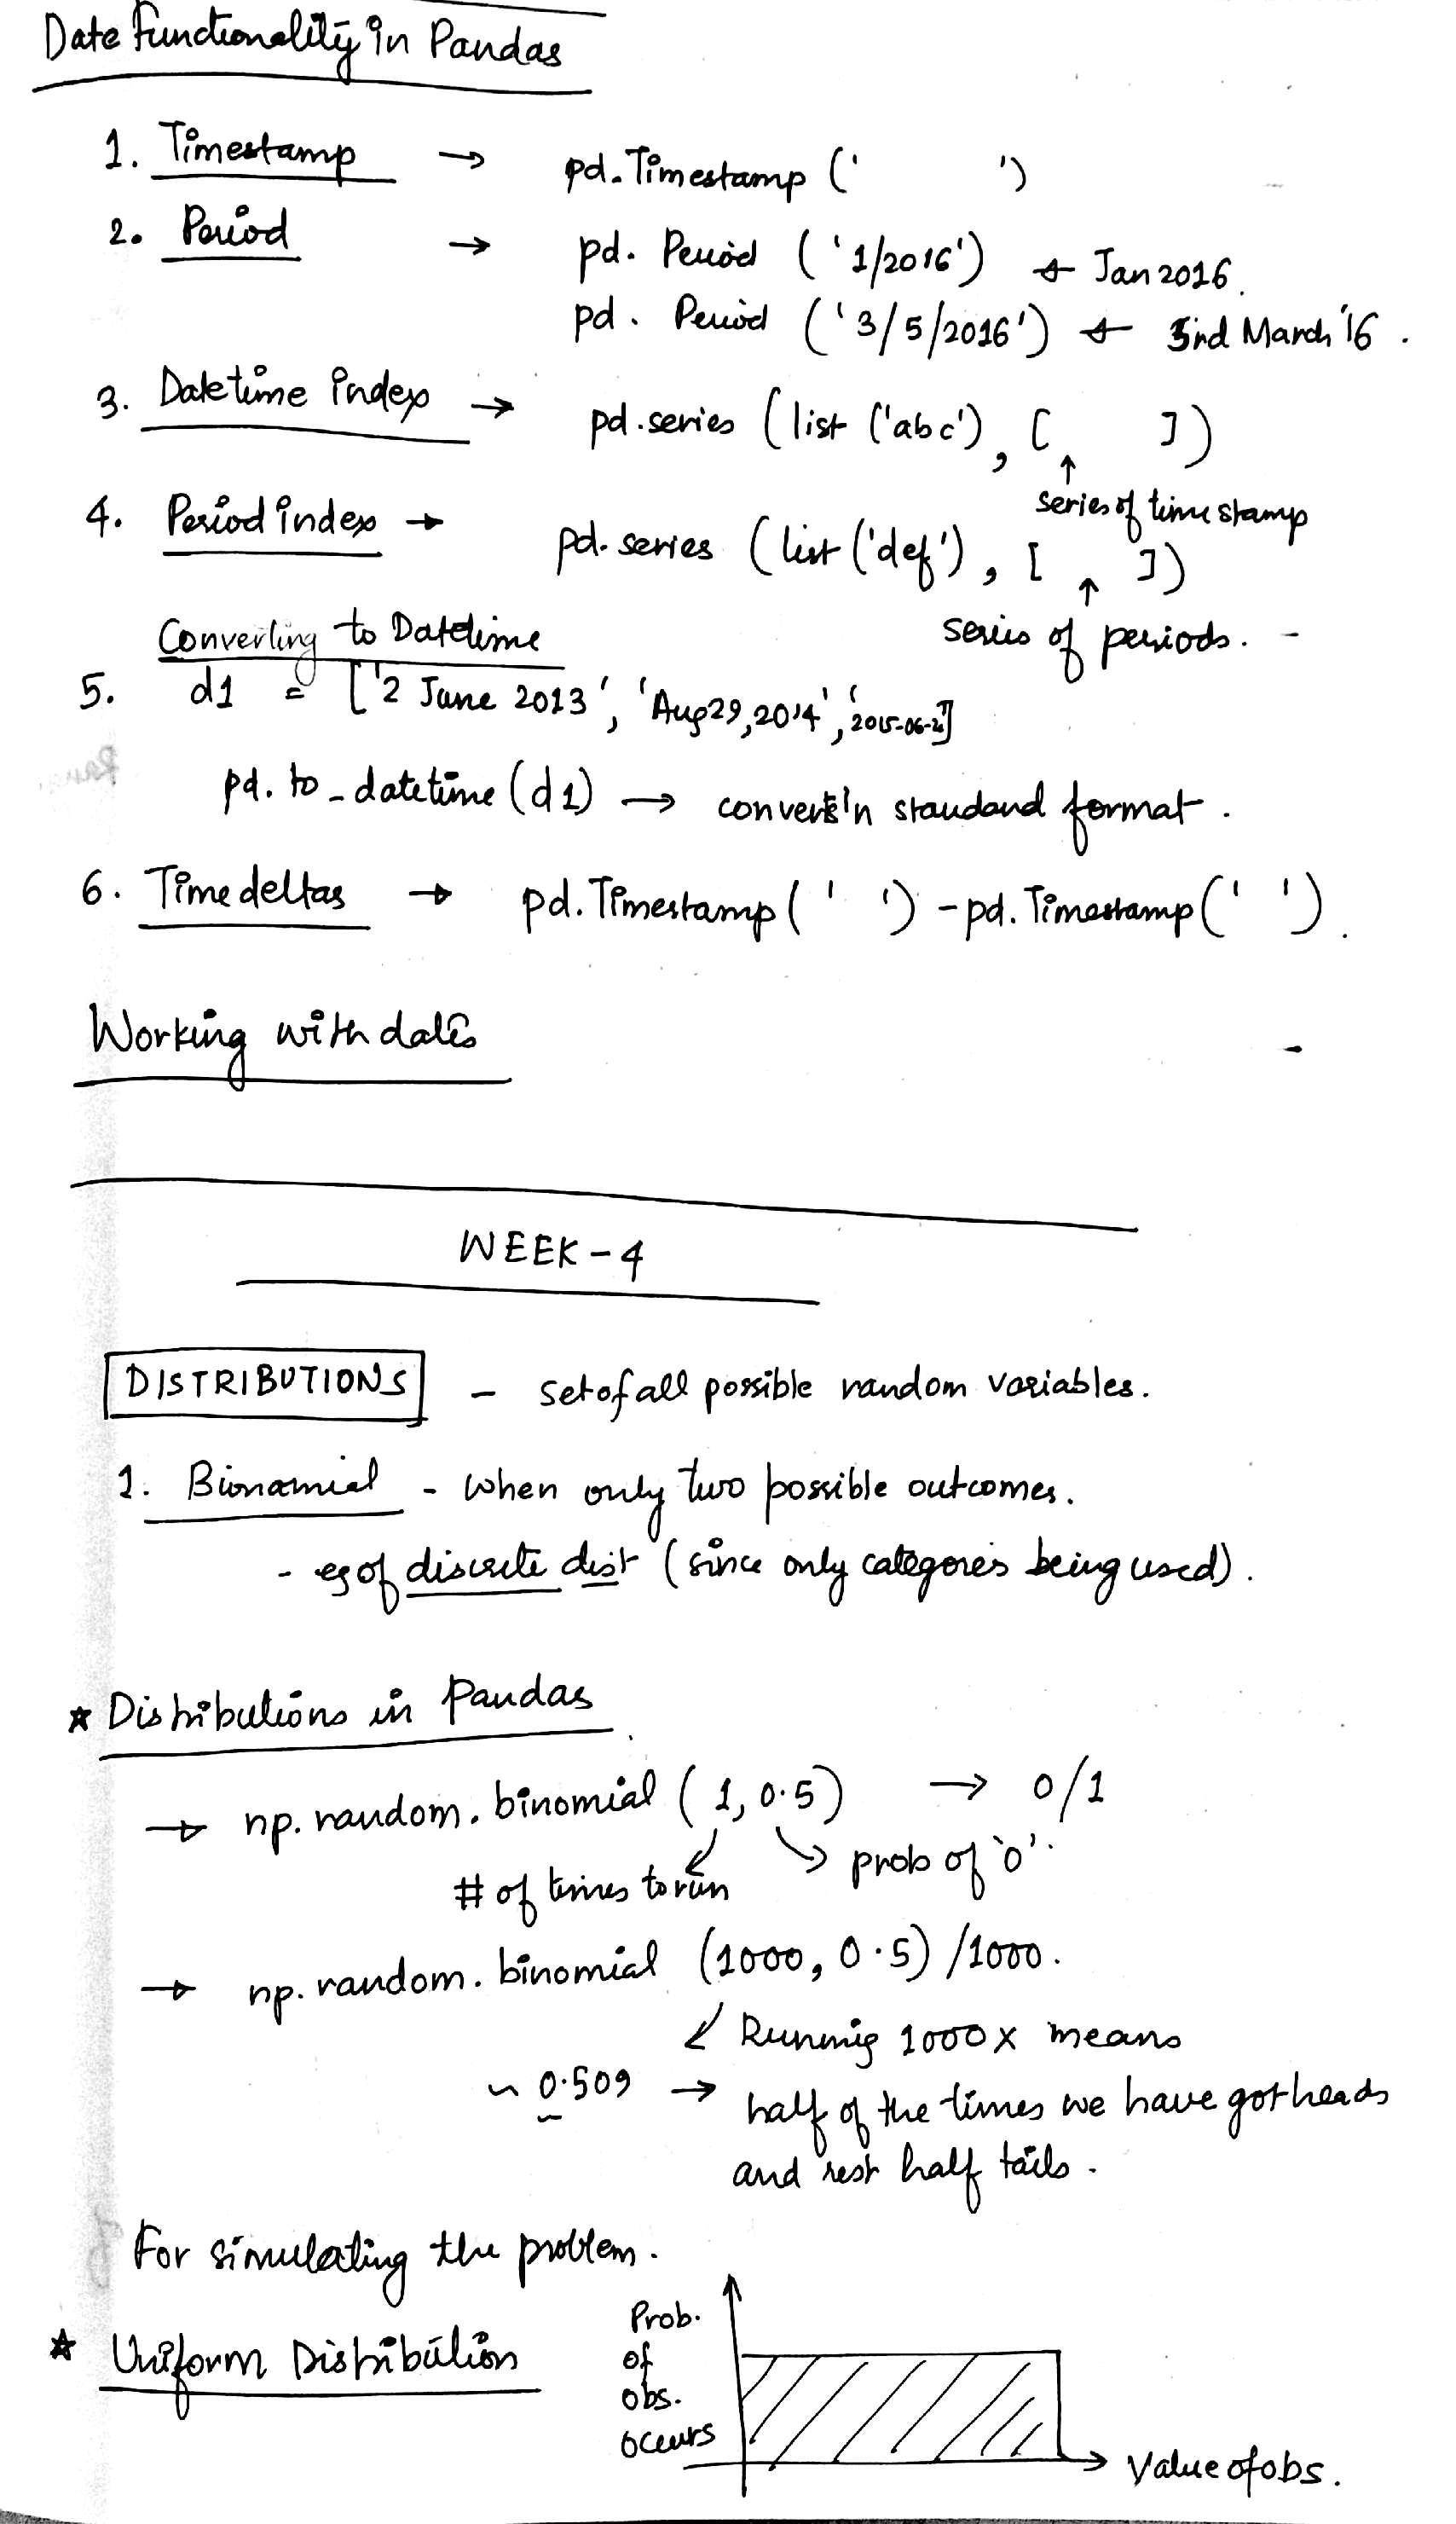 Date Functionality in Pandas
1. Timestamp → pd.Timestamp (' ')
2. Period → pd. Period ('1/2016') ← Jan 2016.
pd. Period ('3/5/2016') ← March '16.
3. Datetime index → pd.series (list ('abc'), [ ])
↑ series of timestamp
4. Period index → pd.series (list ('def'), [ ])
↑ series of periods. -
Converting to Datetime
5. d1 = ['2 June 2013', 'Aug 29, 2014',
pd. to_datetime (d1) → in standard format.
6. Time deltas → pd.Timestamp (' ') - pd.Timestamp (' ').
Working with dates
WEEK - 4
DISTRIBUTIONS - set of all possible random variables.
1. Bionamial - when only two possible outcomes.
- eg of discrete dist (since only categories being used).
* Distributions in Pandas
→ np. random. binomial (1, 0.5) → 0/1
# of times to run prob of '0'.
→ np. random. binomial (1000, 0.5) /1000.
Running 1000x means
~ 0.509 → half of the times we have got heads
and rest half tails.
For simulating the problem.
* Uniform Distribution
Prob.
of
obs.
occurs
Value of obs.